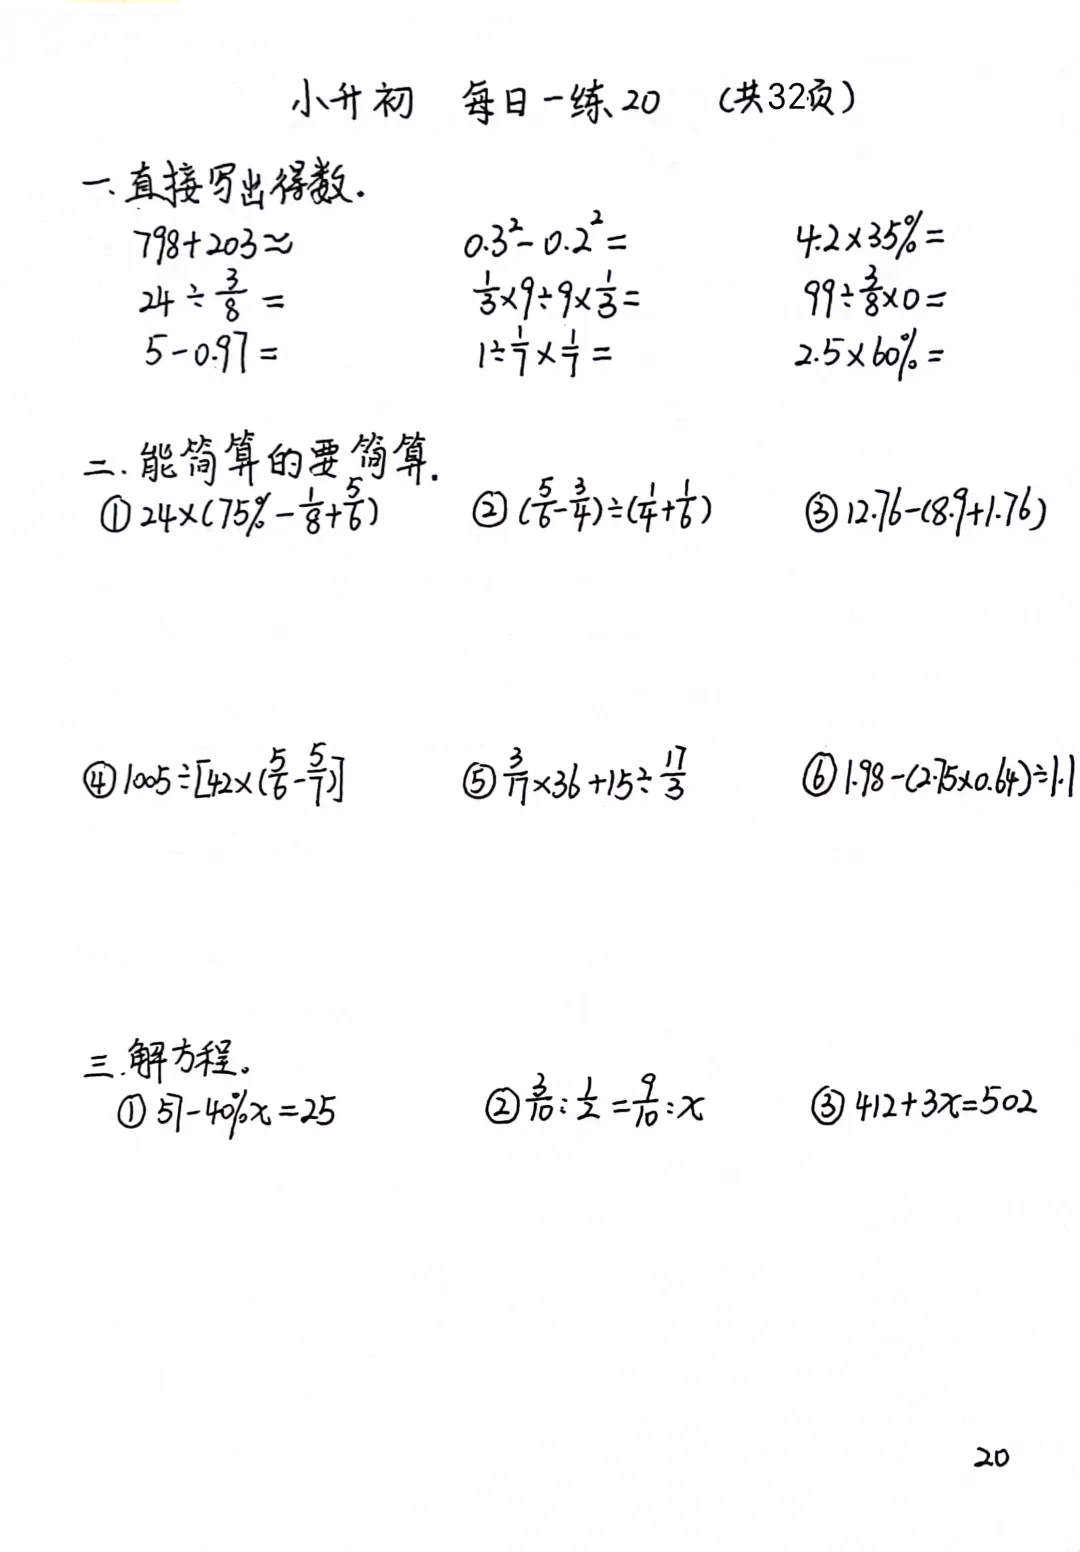 小升初 每日一练20 (共32页)
一、直接写出得数.
798+203≈ 0.3²-0.2²= 4.2×35%=
24÷3/8= 1/3×9÷9×1/3= 99÷3/8×0=
5-0.97= 1÷1/7×1/7= 2.5×60%=
二.能简算的要简算.
①24×(75%-1/8+5/6) ②(5/6-3/4)÷(1/4+1/6) ③12.76-(8.9+1.76)
④1005÷[42×(5/6-5/7)] ⑤3/17×36+15÷17/3 ⑥1.98-(2.75×0.64)÷1.1
三.解方程。
①57-40%x=25 ②3/10:1/2=9/10:x ③412+3x=502
20